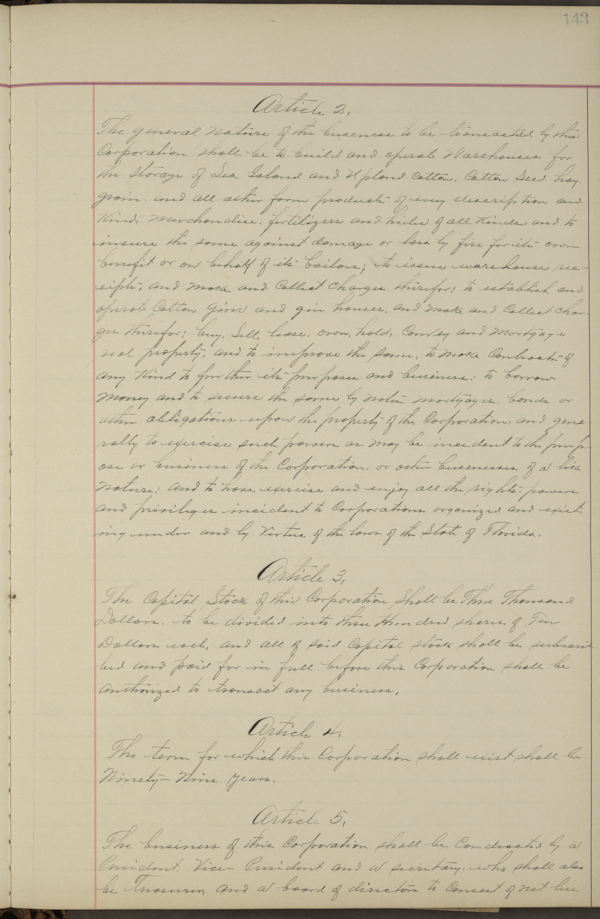 143
Article 2.
The general nature of the business to be transacted by this
Corporation shall be to build and operate Warehouses for
the storage of Sea Island and Upland Cotton, Cotton Seed, hay,
grain, and all other farm products of every description and
Kind, Merchandise, fertilizers and hides of all Kinds, and to
insure the same against damage or loss by fire for its own
benefit or on behalf of its bailors; to issue warehouse rec-
eipts, and make and Collect Charges therefor; to establish and
operate Cotton Gins and gin houses, and make and Collect Char-
ges therefor; buy, Sell, lease, own, hold, Convey and Mortgage
real property, and to improve the same, to make Contracts of
any Kind to further its purposes and business; to borrow
Money and to secure the same by notes, mortgages, bonds or
other obligations upon the property of the Corporation and gene-
rally to exercise such powers as may be incident to the purp-
ose or business of the Corporation, or other businesses of a like
Nature; and to have, exercise and enjoy all the rights, powers
and privileges incident to Corporations organized and exist-
ing under and by Virtue of the laws of the State of Florida.
Article 3.
The Capital Stock of this Corporation shall be Three Thousand
Dollars, to be divided into three Hundred shares of Ten
Dollars each, and all of said Capital stock shall be subscri
bed and paid for in full before this Corporation shall be
authorized to transact any business.
Article 4.
The term for which this Corporation shall exist shall be
Ninety-Nine years.
Article 5.
The business of this Corporation shall be Conducted by a
President, Vice President and a secretary, who shall also
be Treasurer, and a board of directors to Consist of not less